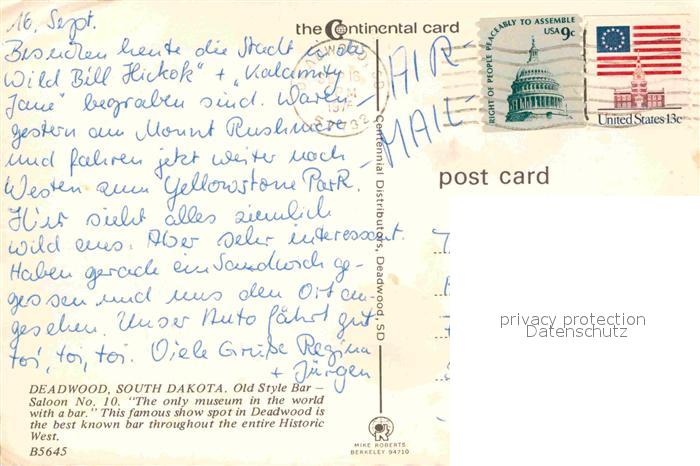 16. Sept.
Besuchen heute die Stadt wo
"Wild Bill Hickok" + "Kalamity
Jane" begraben sind. Waren
gestern am Mount Rushmore
und fahren jetzt weiter nach
Westen zum Yellowstone Park.
Hier sieht alles ziemlich
wild aus. Aber sehr interessant.
Haben gerade ein Sandwich ge-
gessen und uns den Ort an-
gesehen. Unser Auto fährt gut
toi, toi, toi. Viele Grüße Regina
+ Jürgen
DEADWOOD, SOUTH DAKOTA. Old Style Bar –
Saloon No. 10. "The only museum in the world
with a bar." This famous show spot in Deadwood is
the best known bar throughout the entire Historic
West.
B5645
the Continental card
AIR-
MAIL-
DEADWOOD, SD
57732
Centennial Distributors, Deadwood, SD
MIKE ROBERTS
BERKELEY 94710
RIGHT OF PEOPLE PEACEABLY TO ASSEMBLE
USA 9c
United States 13c
post card
privacy protection
Datenschutz